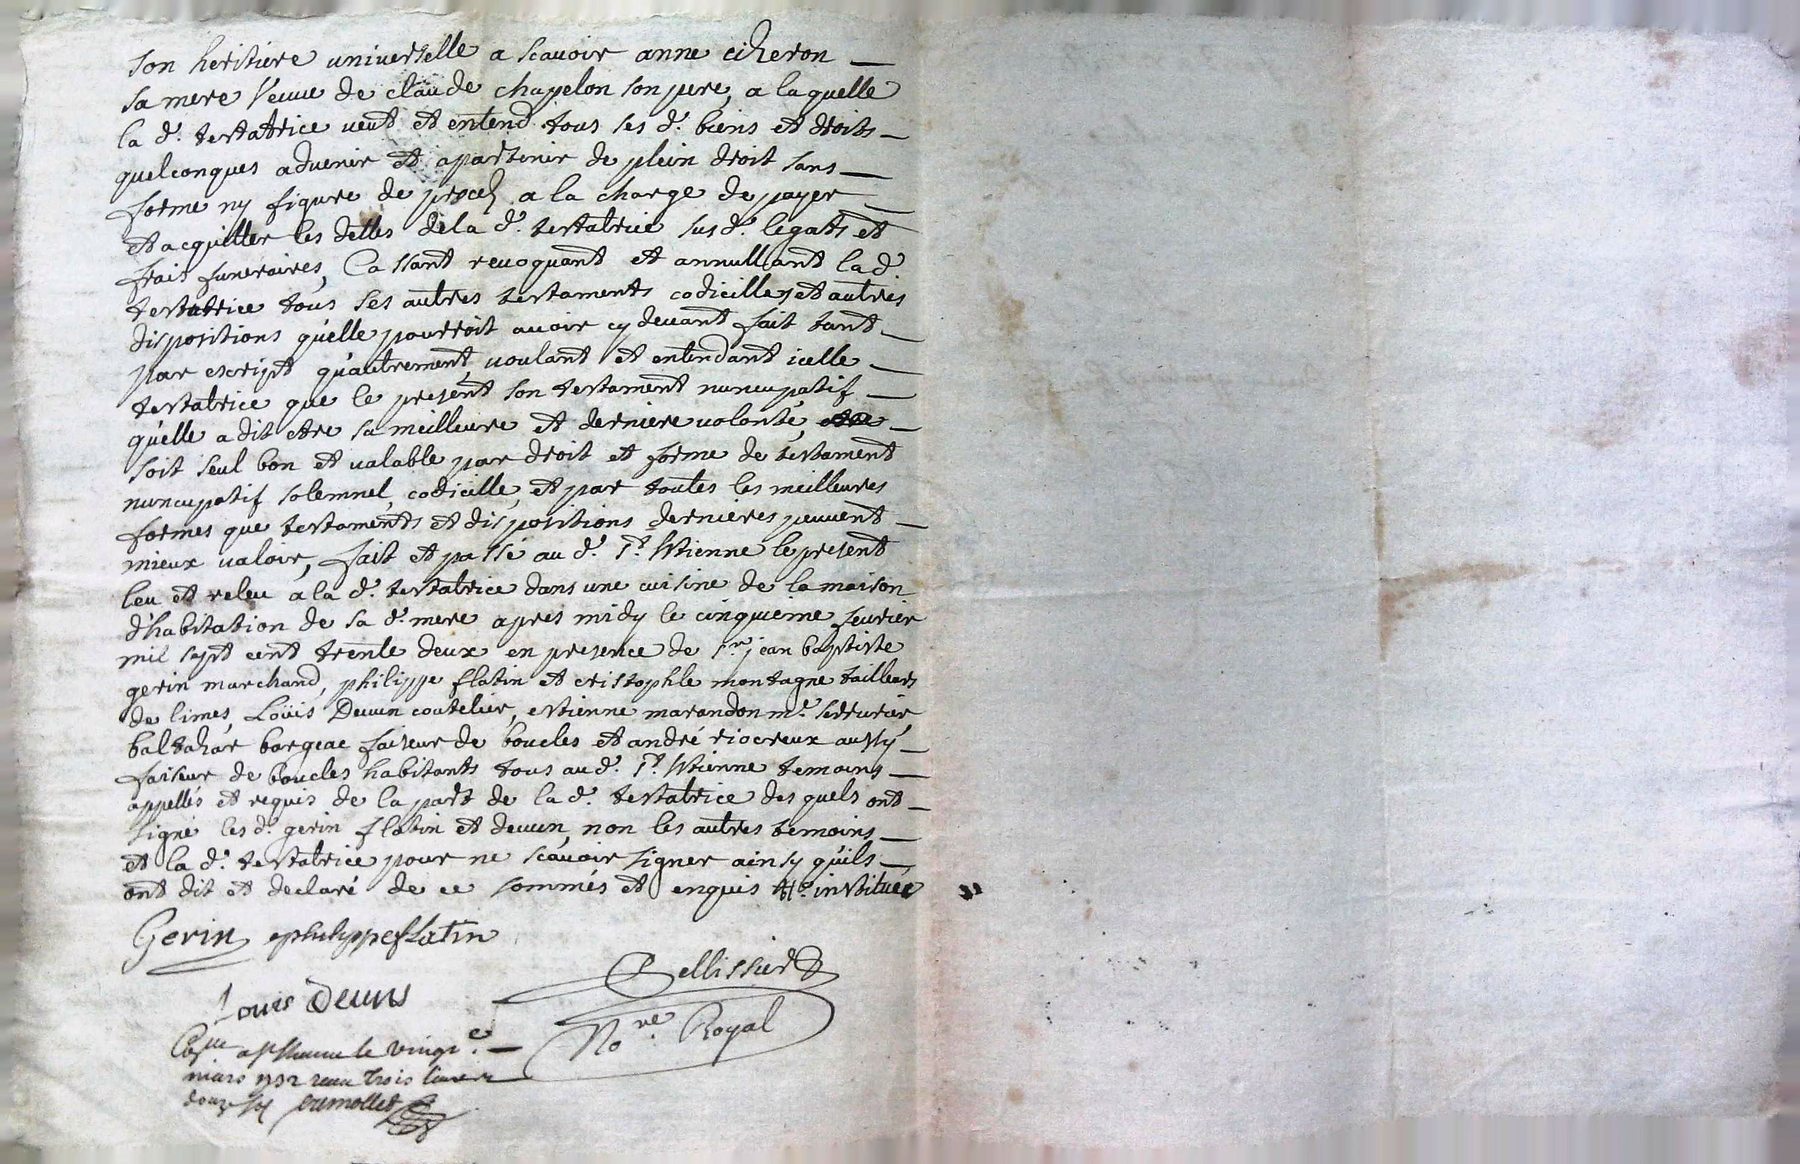 son heritiere universelle a scavoir anne ciheron
sa mere veuue de claude chapelon son pere, a laquelle
la d.e testatrice ueut et entend tous ses d. biens et droits
quelconques aduenir et apartenir de plein droit sans
forme ny figure de proces a la charge de payer
et acquitter les dettes de la d.e testatrice sus d. legats et
frais funeraires, Cassant reuoquant et annullant la d.e
testatrice tous ses autres testaments codicilles et autres
dispositions qu'elle pourroit auoir cy deuant fait tant
par escript qu'autrement, uoulant et entendant icelle
testatrice que le present son testament nuncupatif
qu'elle a dit etre sa meilleure et derniere uolonté,
soit seul bon et ualable par droit et forme de testament
nuncupatif solemnel, codicille, et par toutes les meilleures
formes que testaments et dispositions dernieres peuuent
mieux ualoir, fait et passé au d. St. Estienne le present
leu et releu a la d.e testatrice dans une cuisine de la maison
d'habitation de sa d.e mere apres midy le cinquieme feurier
mil sept cent trente deux en presence de Sr. jean baptiste
gerin marchand, philippe flatin et cristophle montagne tailleurs
de limes, Loüis Deuun coutelier, estienne marandon me. serrurier
baltahar bargeac faiseur de boucles et andré riocreux aussy
faiseur de boucles habitants tous au d. St. Estienne temoins
appellés et requis de la part de la d.e testatrice desquels ont
signé les d. gerin flatin et deuun, non les autres temoins
et la d.e testatrice pour ne scauoir signer ainsy qu'ils
ont dit et declaré de ce sommés et enquis instituée
Gerin philyppe flatin
Pellissier
Louis Deuns
No.re Royal
le vingt
mars 1732 receu trois liures
douze s